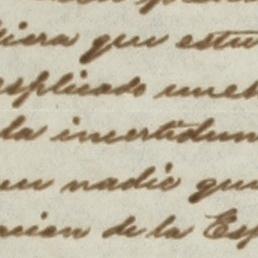 iera que estu
esplicado much
la incertidum
un nadie que
acion de la Esp